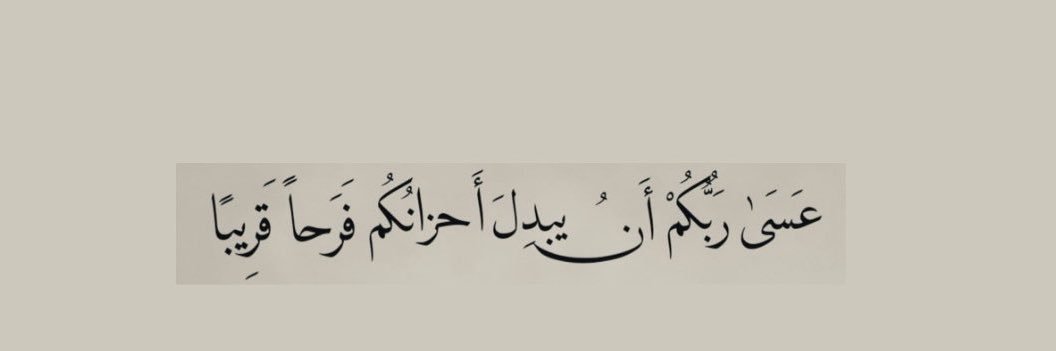 عَسَىٰ رَبُّكُمْ أَن يُبدِلَ أَحزانَكُم فَرَحاً قَرِيبًا